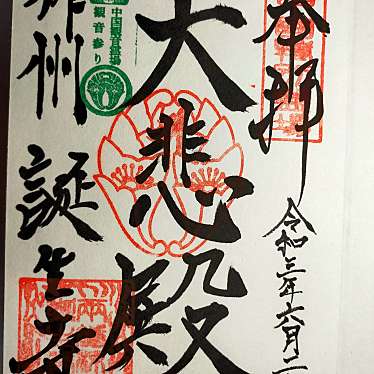 奉拝
令和三年六月二
大悲殿
中国観音霊場
観音参り
作州
誕生寺